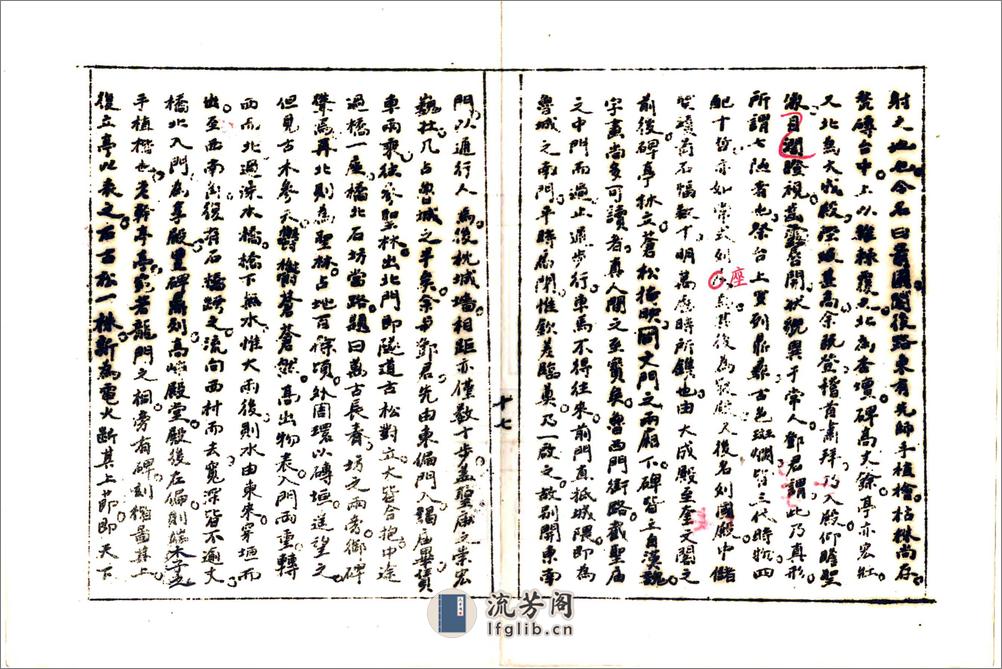 射之地也今名曰 後路東有先師手植檜枯株尚存
甃磚台中上以維棘覆之北為杏壇碑高丈餘亭亦宏壯
又北為大成殿陛級甚高余既登稽首肅拜乃入殿仰瞻聖
像目 瞪視萬露唇開狀貌異于常人鄧君謂此乃真形
所謂七陋者也祭台上實列鼎彝古色斑斕皆三代時物四
配十哲亦如常式列座 其後為寢殿又後名列國殿中儲
聖蹟 石幅数十明萬歷時所鐫也由大成殿至奎文閣之
前後碑亭林立蒼松掩映同文門之兩廂下碑皆立自漢魏
字畫尚多可讀者真人間之至寶矣魯西門街路截聖廟
之中門而過止通步行車馬不得往來前門直抵城隈即為
魯城之南門平時扃閉惟欽差臨奠乃一啟之故別開東南
十七
門以通行人為後枕城墻相距亦僅數十步蓋聖廟之崇宏
巍壯几占魯城之半矣余與鄧君先由東偏門入謁廟畢賃
車兩乘往參聖林出北門即隧道古松對立大皆合抱中途
過橋一座橋北石坊當路題曰萬古長春坊之兩旁御碑
樊焉再北則為聖林占地百餘頃外周環以磚垣遙望之
但見古木參天鬱鬱蒼蒼然高出物表入門兩重轉
西而北過洙水橋橋下無水惟大雨後則水由東來穿垣而
出至西南 復有石橋跨之流向西村而去寬深皆不逾丈
橋北入門為享殿豐碑鼎刻高峰殿堂殿後左偏則端木子
手植楷也老幹亭亭 若龍門之桐旁有碑刻楷圖其上
復立亭以表之右古松一株新為電火斷其上節即天下
流芳阁
lfglib.cn